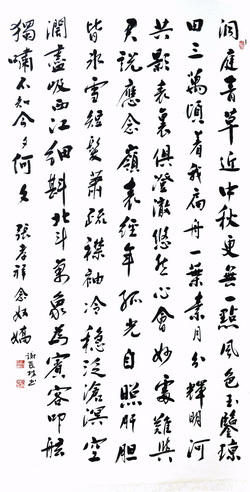 洞庭青草近中秋更無一點風色玉鑒瓊
田三萬頃著我扁舟一葉素月分輝明河
共影表裏俱澄澈悠然心會妙處難與
君說應念嶺表經年孤光自照肝膽
皆冰雪短髮蕭疏襟袖冷穩泛滄溟空
闊盡吸西江細斟北斗萬象為賓客叩舷
獨嘯不知今夕何夕 張孝祥念奴嬌